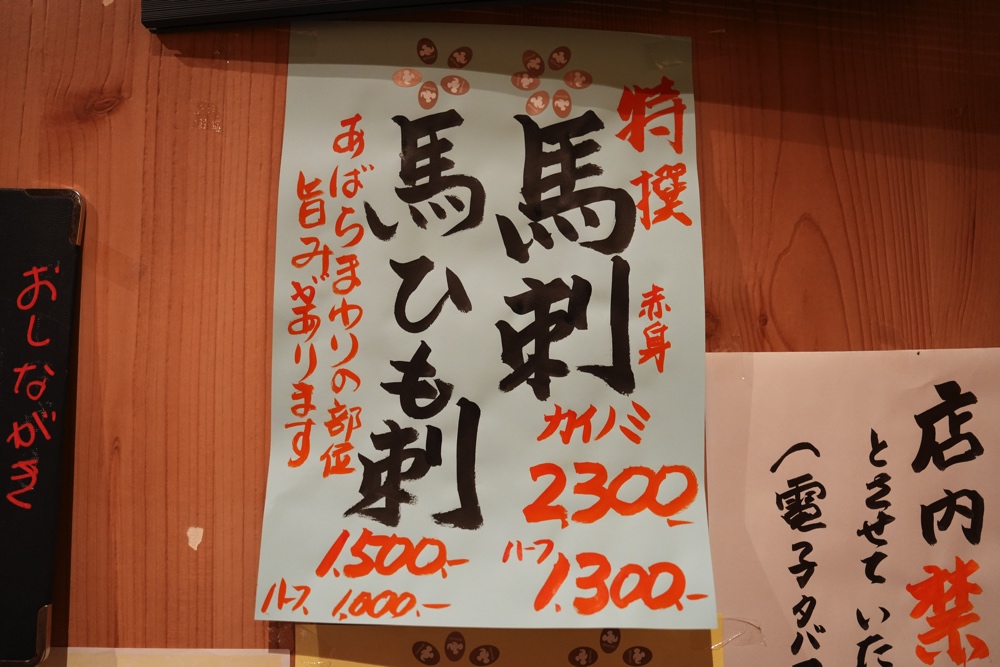 特撰
馬刺
赤身
カイノミ
2300.-
ハーフ 1,300.-
馬ひも刺
あばらまわりの部位
旨みがあります
1,500.-
ハーフ 1,000.-
おしながき
店内禁
とさせていた
(電子タバコ